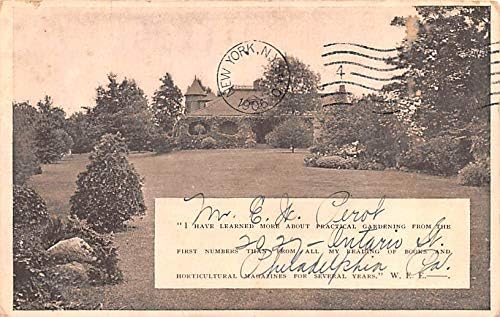 NEW YORK, N.Y.
1906
4
Mr. E. H. Perot
"I HAVE LEARNED MORE ABOUT PRACTICAL GARDENING FROM THE
2027 - Ontario St.
FIRST NUMBERS THAN FROM ALL MY READING OF BOOKS AND
Philadelphia Pa.
HORTICULTURAL MAGAZINES FOR SEVERAL YEARS." W. E. E.—.